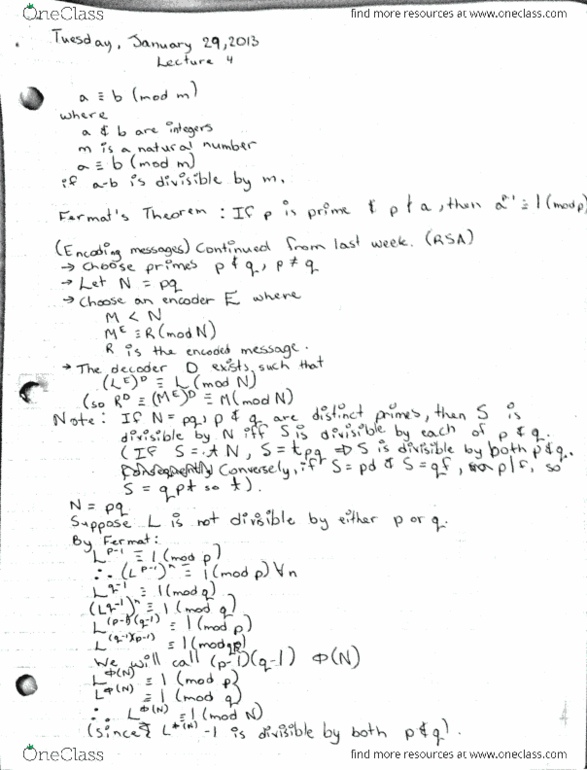 OneClass
find more resources at www.oneclass.com
Tuesday, January 29, 2013
Lecture 4
a ≡ b (mod m)
where
a & b are integers
m is a natural number
a ≡ b (mod m)
if a-b is divisible by m.
Fermat's Theorem : If p is prime & p ∤ a, then aᵖ⁻¹ ≡ 1 (mod p)
(Encoding messages) Continued from last week. (RSA)
→ Choose primes p & q, p ≠ q
→ Let N = pq
→ Choose an encoder E where
M < N
Mᴱ ≡ R (mod N)
R is the encoded message.
→ The decoder D exists such that
(Lᴱ)ᴰ ≡ L (mod N)
(so Rᴰ ≡ (Mᴱ)ᴰ ≡ M (mod N)
Note: If N = pq, p & q are distinct primes, then S is
divisible by N iff S is divisible by each of p & q.
(If S = tN, S = tpq ⇒ S is divisible by both p & q.
Conversely, if S = pd & S = qf, p|f, so
S = qpt so t).
N = pq
Suppose L is not divisible by either p or q.
By Fermat:
Lᵖ⁻¹ ≡ 1 (mod p)
∴ (Lᵖ⁻¹)ⁿ ≡ 1 (mod p) ∀n
L^(q-1) ≡ 1 (mod q)
(L^(q-1))ⁿ ≡ 1 (mod q)
L^(p-1)(q-1) ≡ 1 (mod p)
L^(q-1)(p-1) ≡ 1 (mod q)
We will call (p-1)(q-1) Φ(N)
L^Φ(N) ≡ 1 (mod p)
L^Φ(N) ≡ 1 (mod q)
∴ L^Φ(N) ≡ 1 (mod N)
(since L^Φ(N) - 1 is divisible by both p & q).
OneClass
find more resources at www.oneclass.com